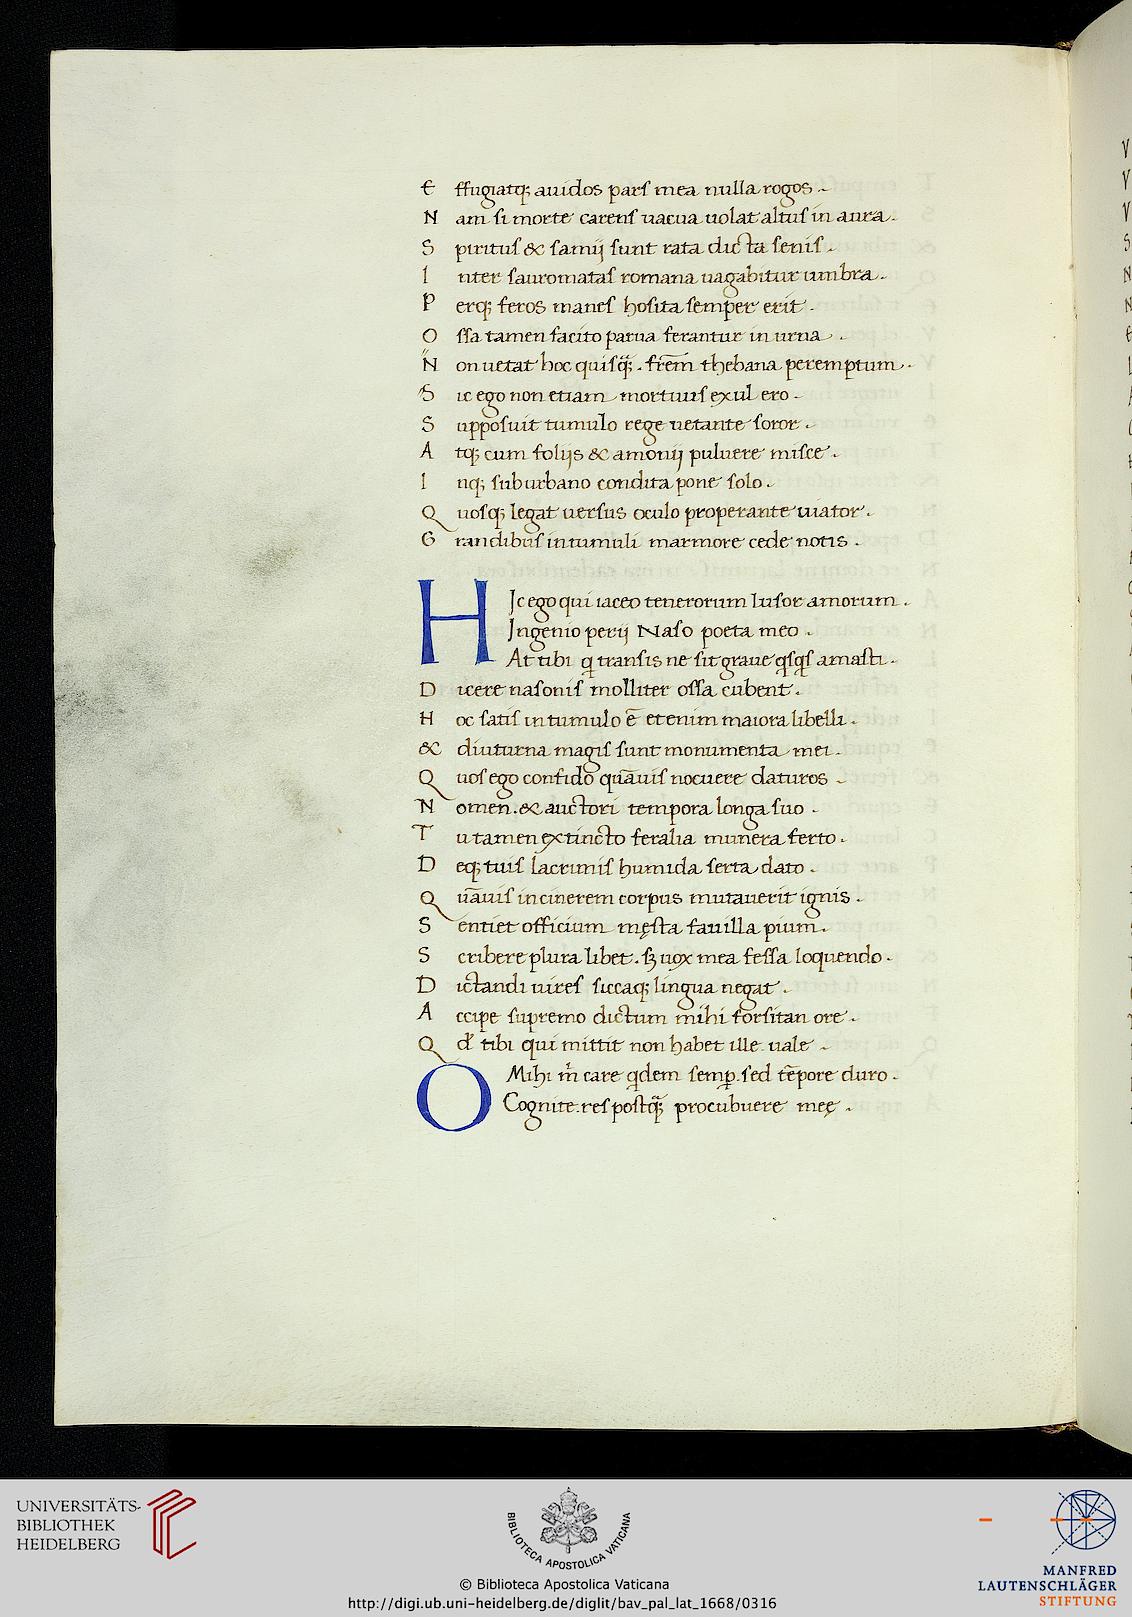 E ffugiatq; auidos pars mea nulla rogos.
N am si morte carens uacua uolat altus in aura.
S piritus & samij sunt rata dicta senis.
I nter sauromatas romana uagabitur umbra.
P erq; feros manes hosita semper erit.
O ssa tamen facito parua ferantur in urna.
N on uetat hoc quisq̃;. frēm thebana peremptum.
S ic ego non etiam mortuus exul ero.
S upposuit tumulo rege uetante soror.
A tq; cum folijs & amonij puluere misce.
I nq; suburbano condita pone solo.
Q uosq; legat uersus oculo properante uiator.
G randibus in tumuli marmore cede notis.
HJc ego qui iaceo tenerorum lusor amorum.
Jngenio perij Naso poeta meo.
At tibi q̱ transis ne sit graue q̱sq̱s amasti.
D icere nasonis molliter ossa cubent.
H oc satis in tumulo ē etenim maiora libelli.
& diuturna magis sunt monumenta mei.
Q uos ego confido quāuis nocuere daturos.
N omen. & auctori tempora longa suo.
T u tamen extincto feralia munera ferto.
D eq; tuis lacrimis humida serta dato.
Q uāuis in cinerem corpus mutauerit ignis.
S entiet officium męsta fauilla pium.
S cribere plura libet. sȝ uox mea fessa loquendo.
D ictandi uires siccaq; lingua negat.
A ccipe supremo dictum mihi forsitan ore.
Q d' tibi qui mittit non habet ille uale.
O Mihi m̃ care q̱dem semp̱. sed tēpore duro.
Cognite. res postq̃; procubuere meę.
UNIVERSITÄTS-
BIBLIOTHEK
HEIDELBERG
BIBLIOTECA APOSTOLICA VATICANA
© Biblioteca Apostolica Vaticana
http://digi.ub.uni-heidelberg.de/diglit/bav_pal_lat_1668/0316
MANFRED
LAUTENSCHLÄGER
STIFTUNG